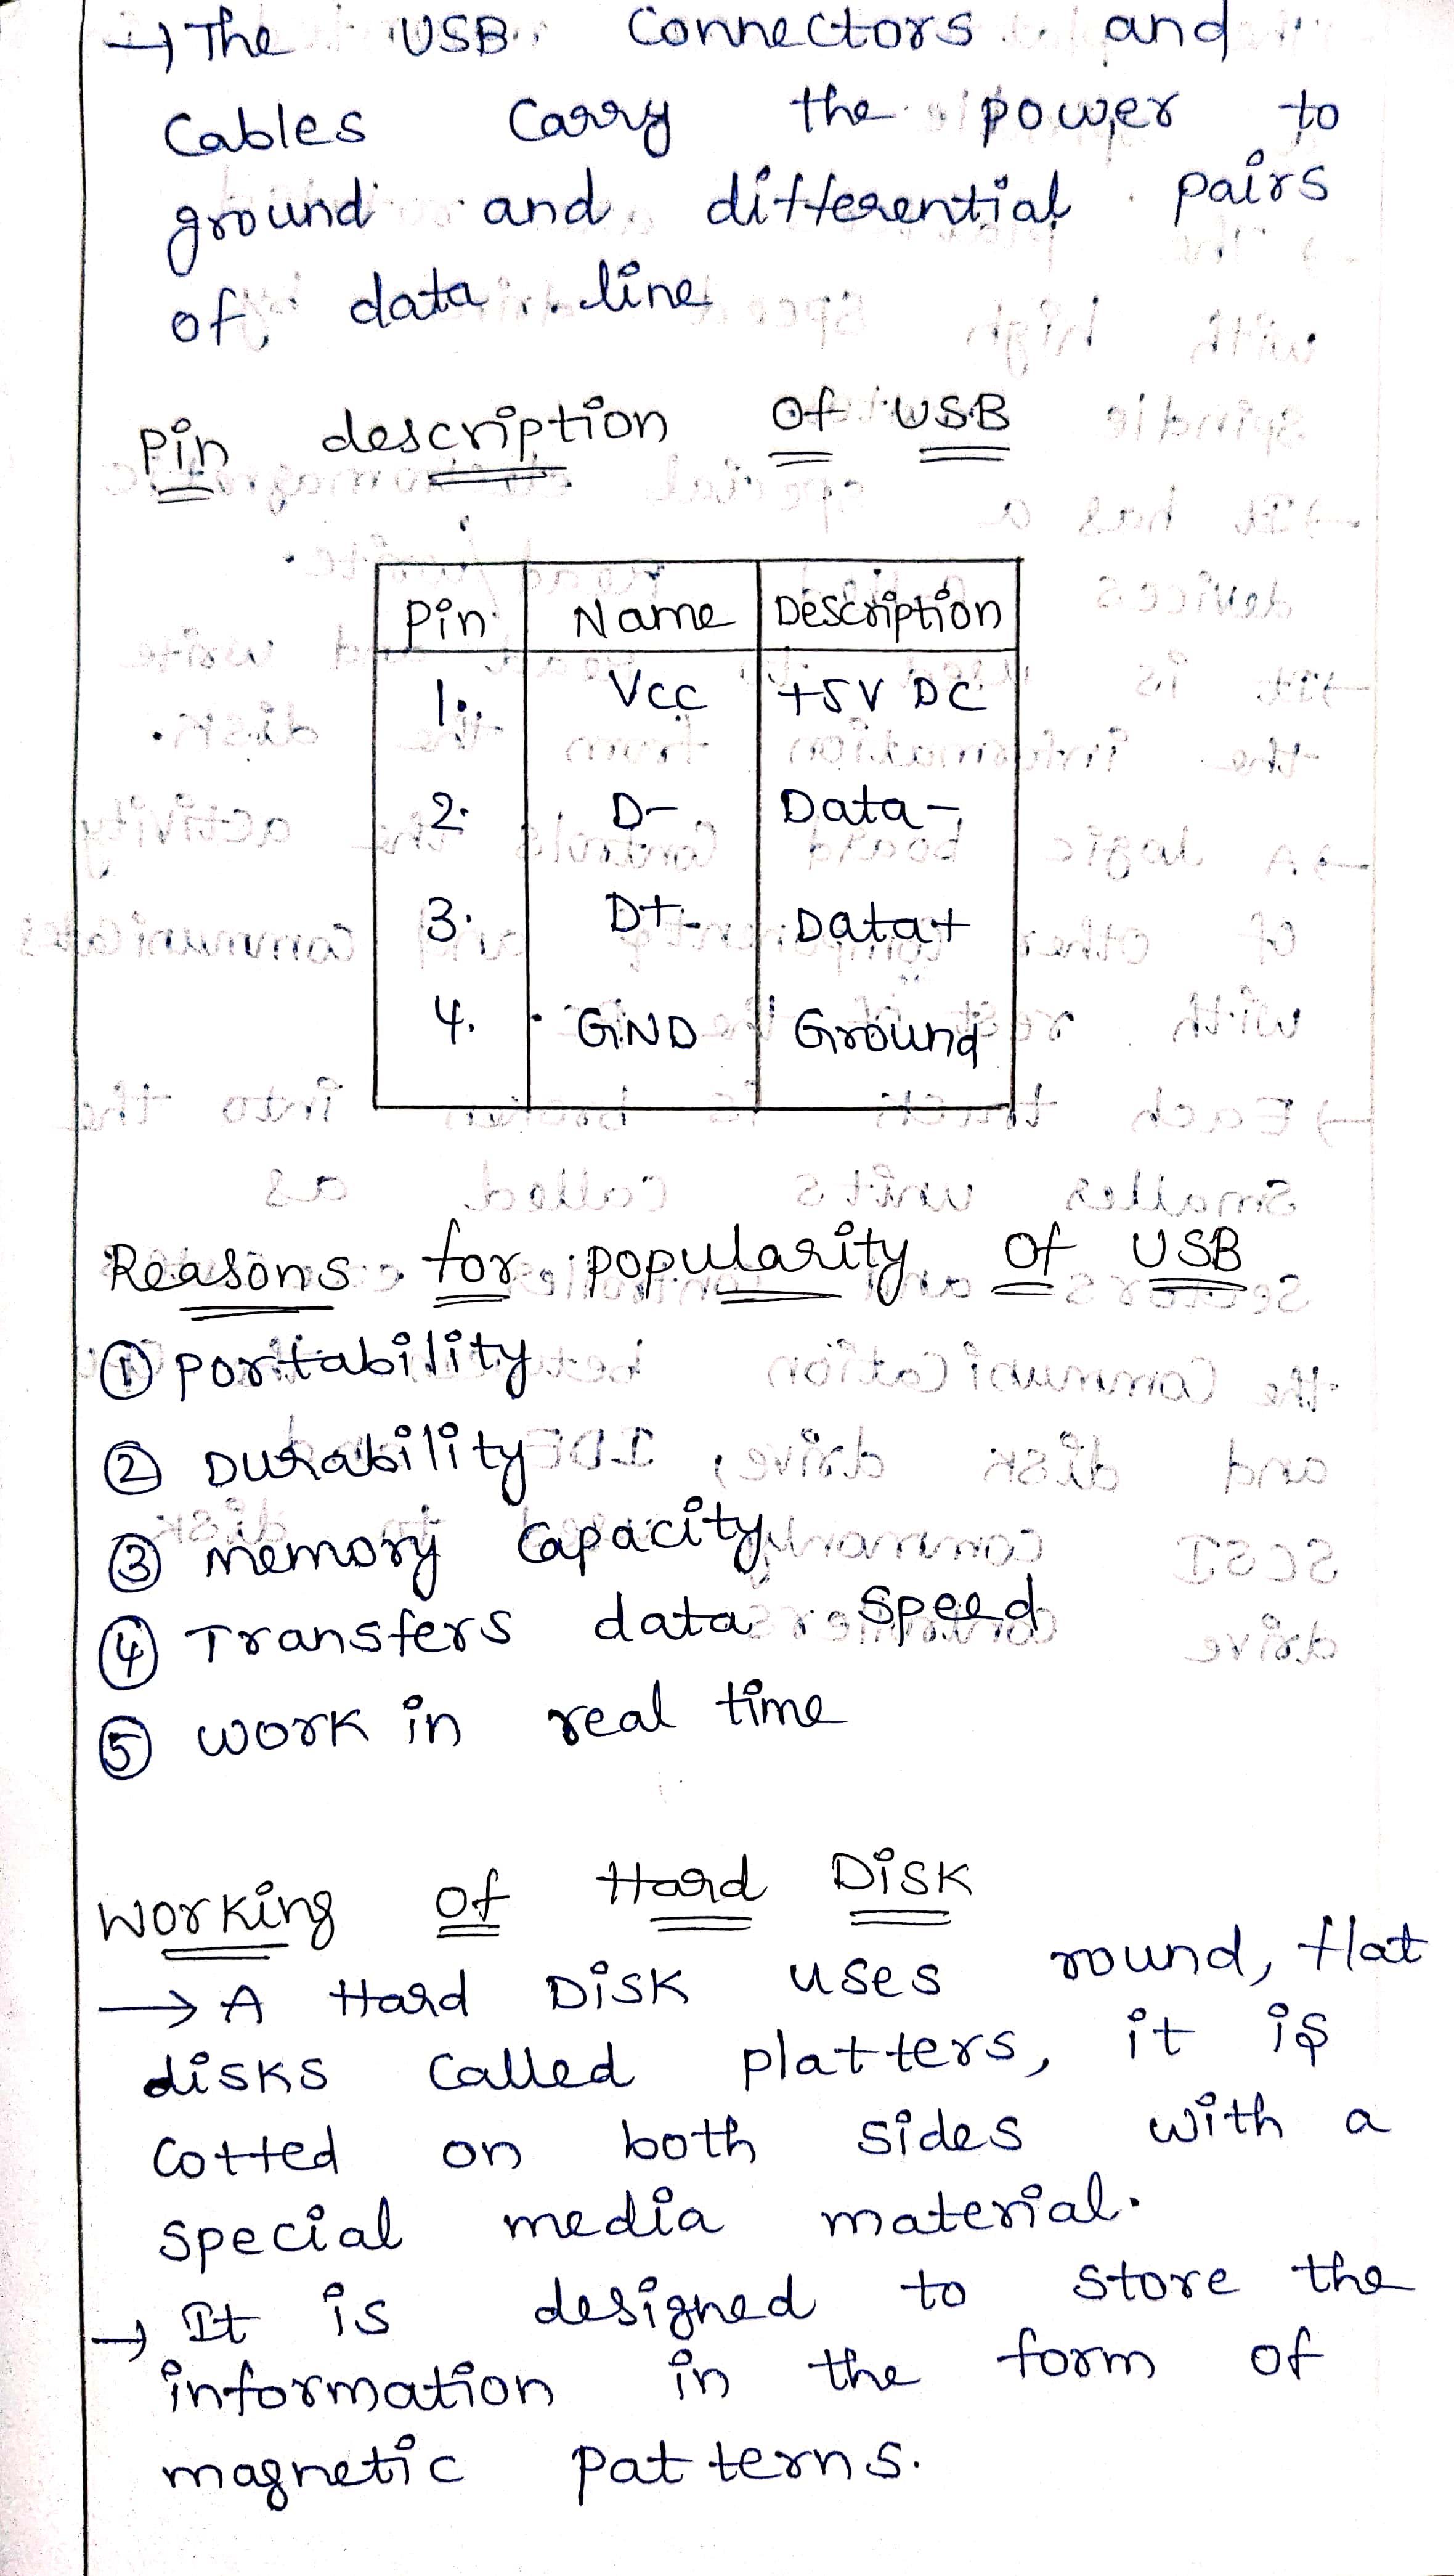 → The USB Connectors and
Cables Carry the power to
ground and differential pairs
of data line
Pin description of USB
Pin Name Description
1. Vcc +5V DC
2. D- Data -
3. D+ Data+
4. GND Ground
Reasons for popularity of USB
① portability
② Durability
③ memory Capacity
④ Transfers data speed
⑤ work in real time
Working of Hard Disk
→ A Hard Disk uses round, flat
disks Called platters, it is
Cotted on both sides with a
special media material.
→ It is designed to store the
information in the form of
magnetic patterns.